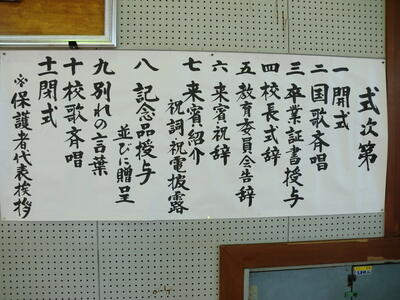 式次第
一 開式
二 国歌斉唱
三 卒業証書授与
四 校長式辞
五 教育委員会告辞
六 来賓祝辞
七 来賓紹介
祝詞祝電披露
八 記念品授与
並びに贈呈
九 別れの言葉
十 校歌斉唱
十一 閉式
※保護者代表挨拶